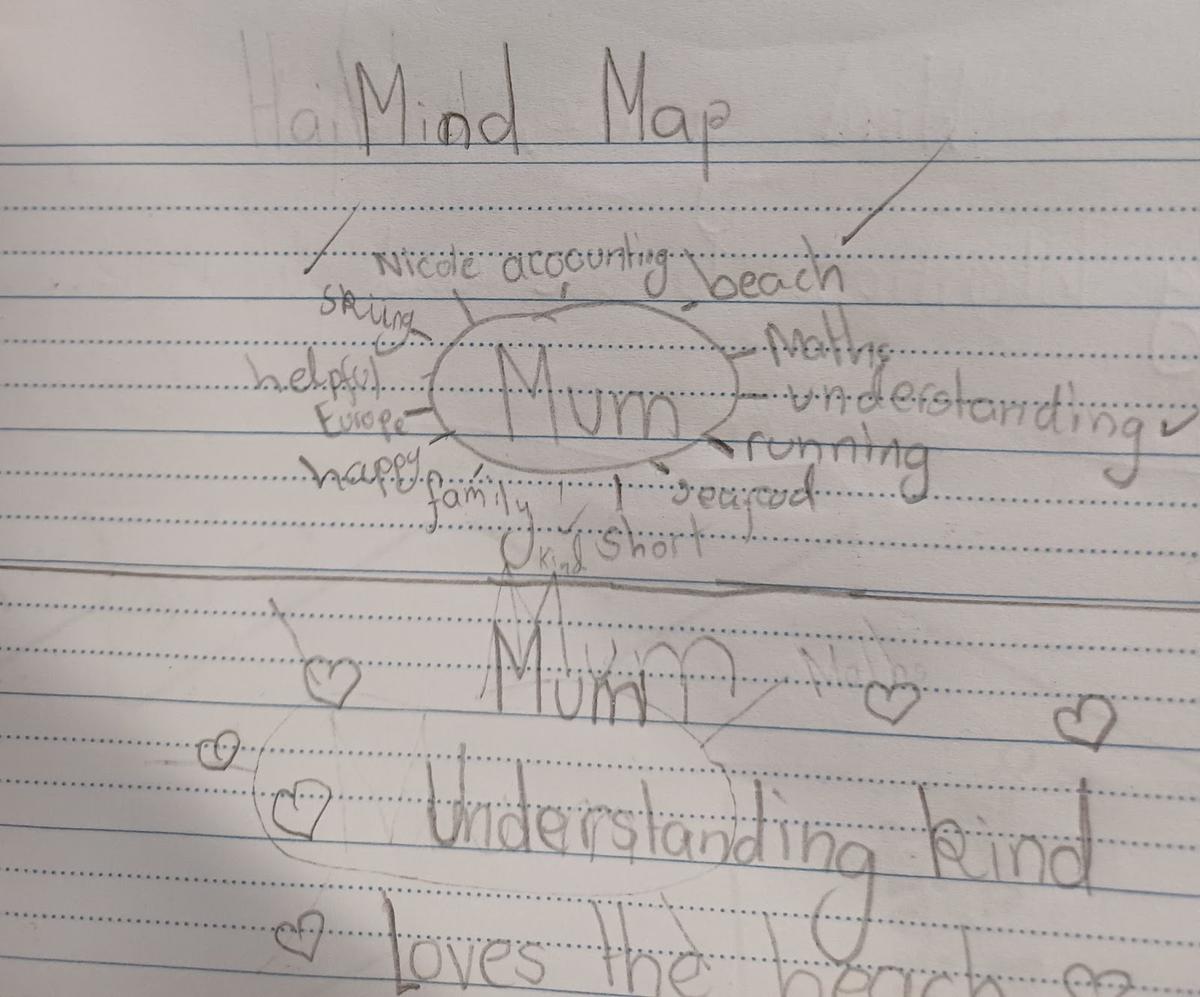 Mind Map
Nicole accounting beach
skiing
Maths
helpful
understanding
Europe
Mum
running
happy
family
seafood
kind short
Mum
Maths
Understanding kind
Loves the beach